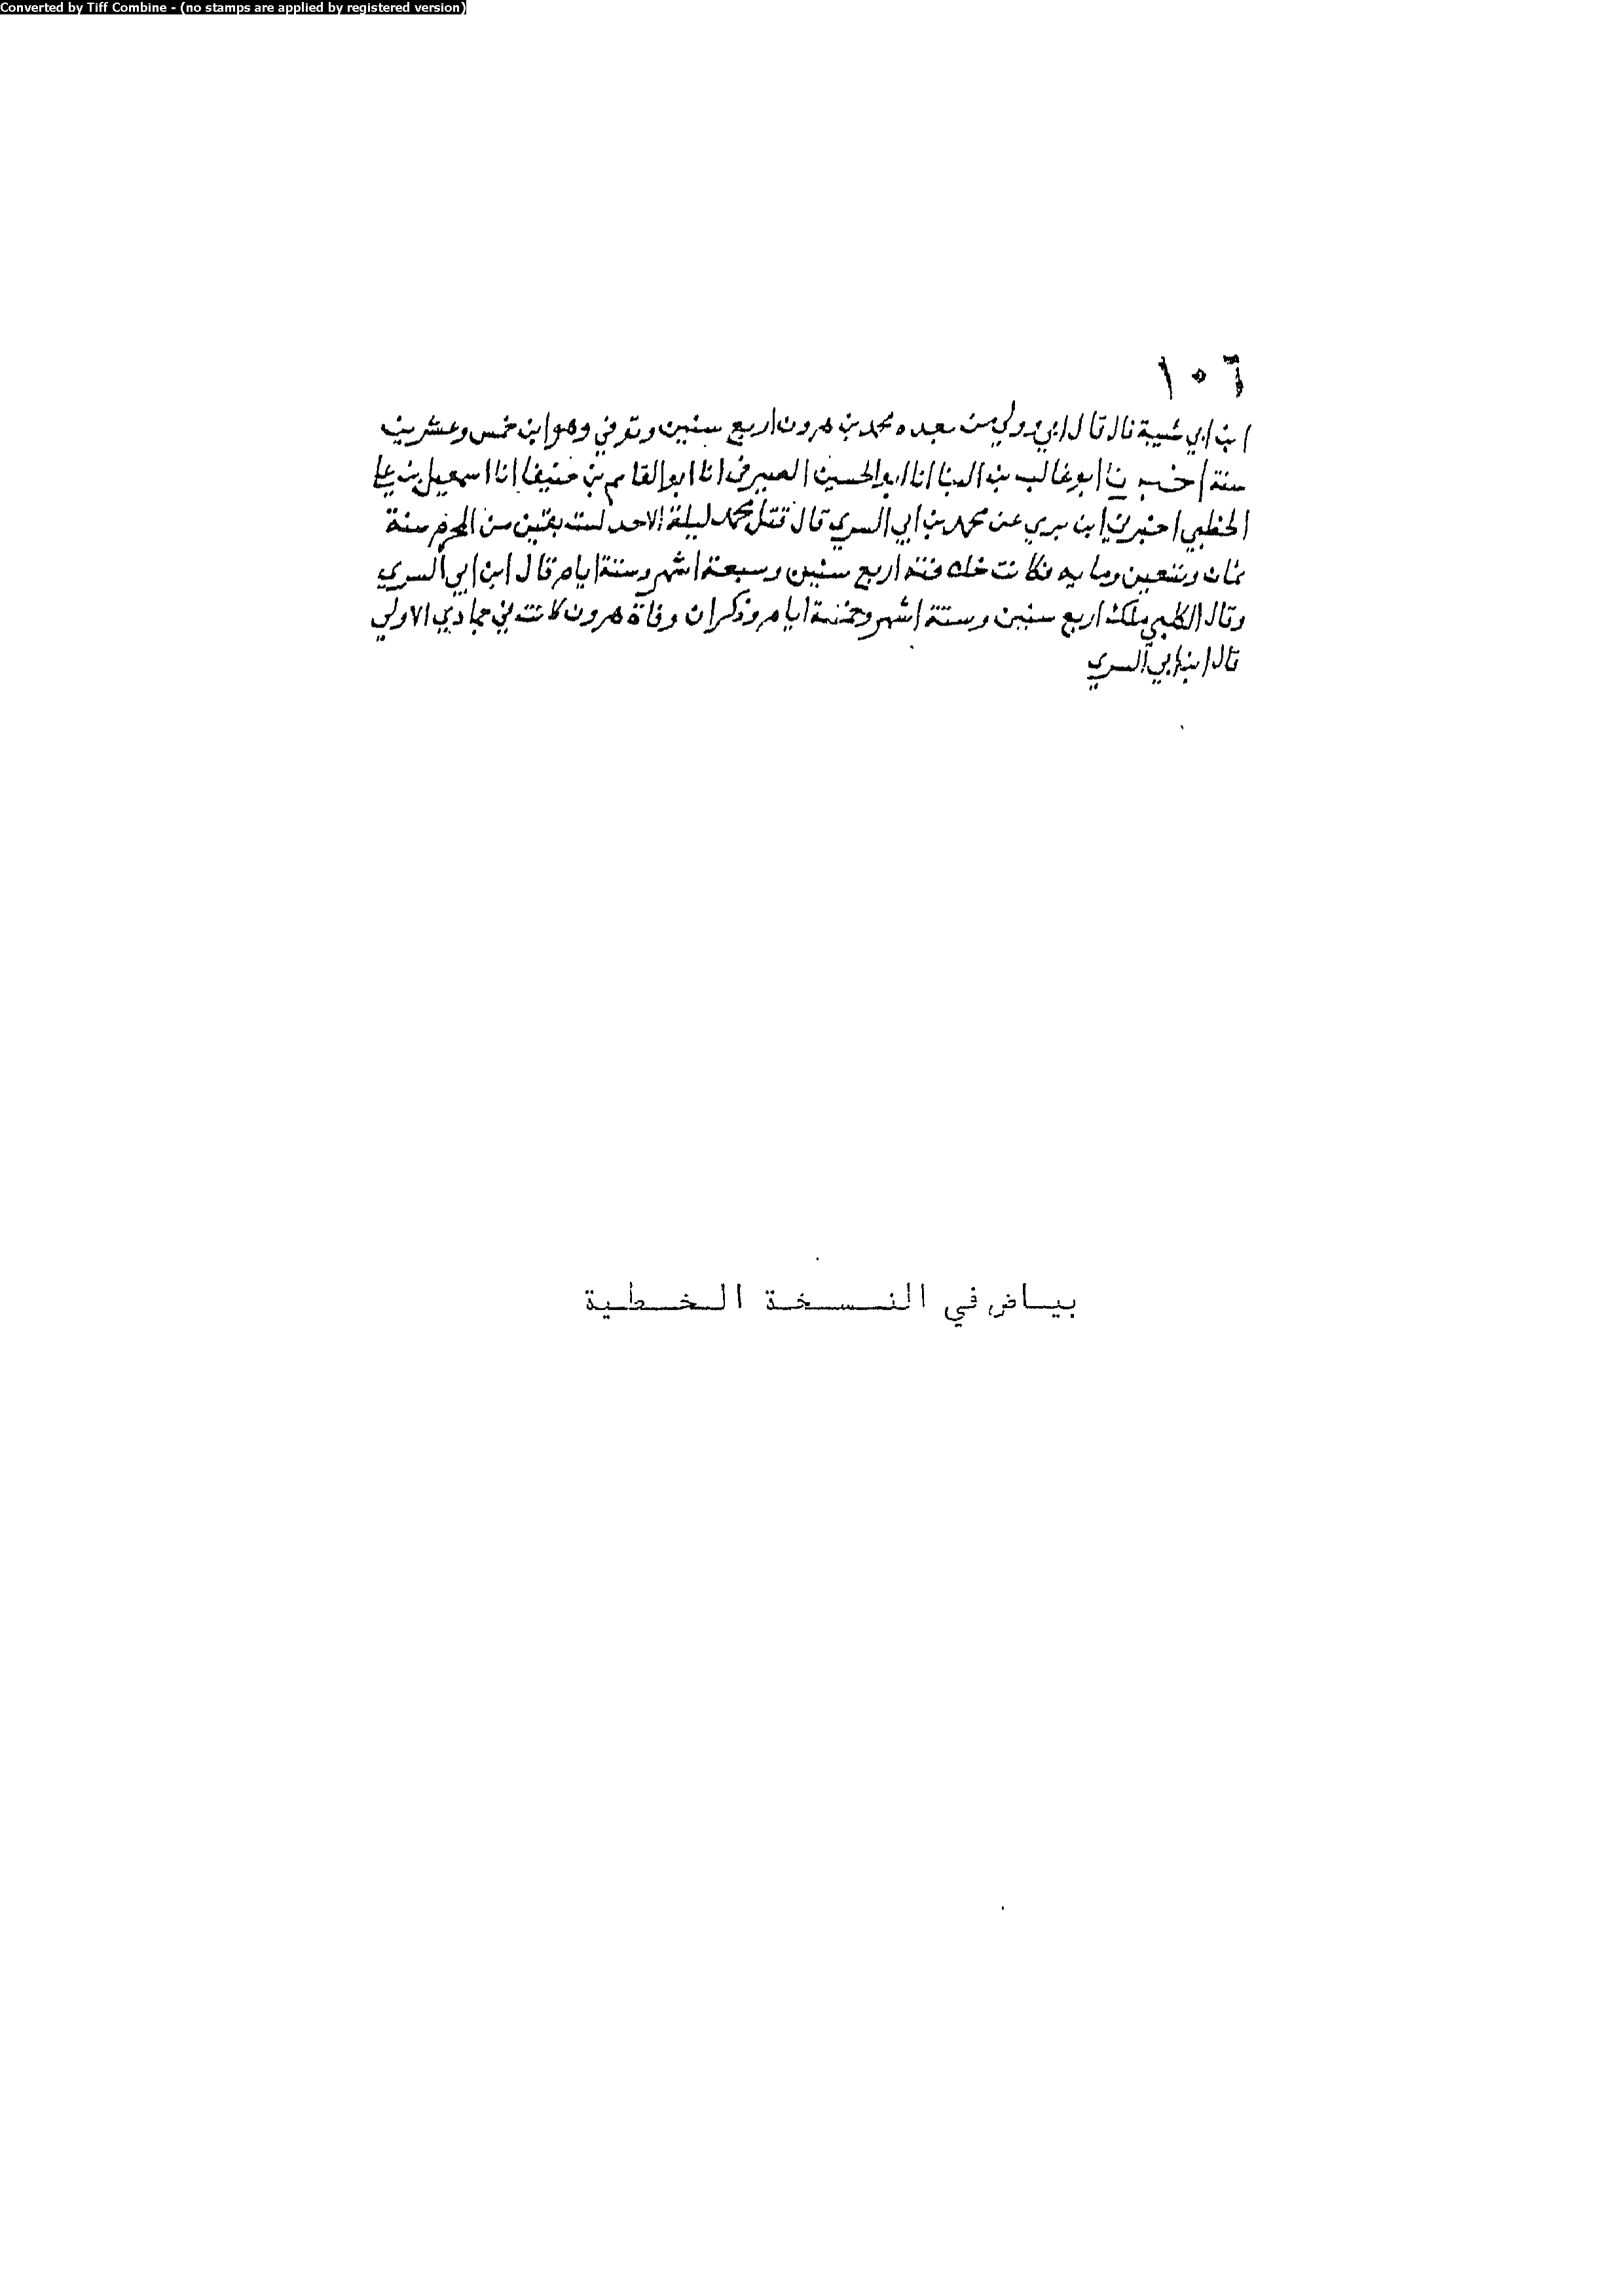 Converted by Tiff Combine - (no stamps are applied by registered version)
١٠٦
ابن ابي شيبة قال قال ابي وولي من بعده محمد بن هرون اربع سنين وتوفي وهو ابن خمس وعشرين
سنة اخبرنا ابو غالب بن البنا انا ابو الحسين الصيرفي انا ابو القاسم بن حنيفا انا اسمعيل بن علي
الخطبي اخبرني ابن بري عن محمد بن ابي السري قال قتل محمد ليلة الاحد لست بقين من المحرم سنة
ثمان وتسعين ومايه فكانت خلافته اربع سنين وسبعة اشهر وستة ايام قال ابن ابي السري
وقال الكلبي ملك اربع سنين وستة اشهر وخمسة ايام وذكر ان وفاة هرون كانت في جمادي الاولي
قال ابن ابي السري
بياض في النسخة الخطية